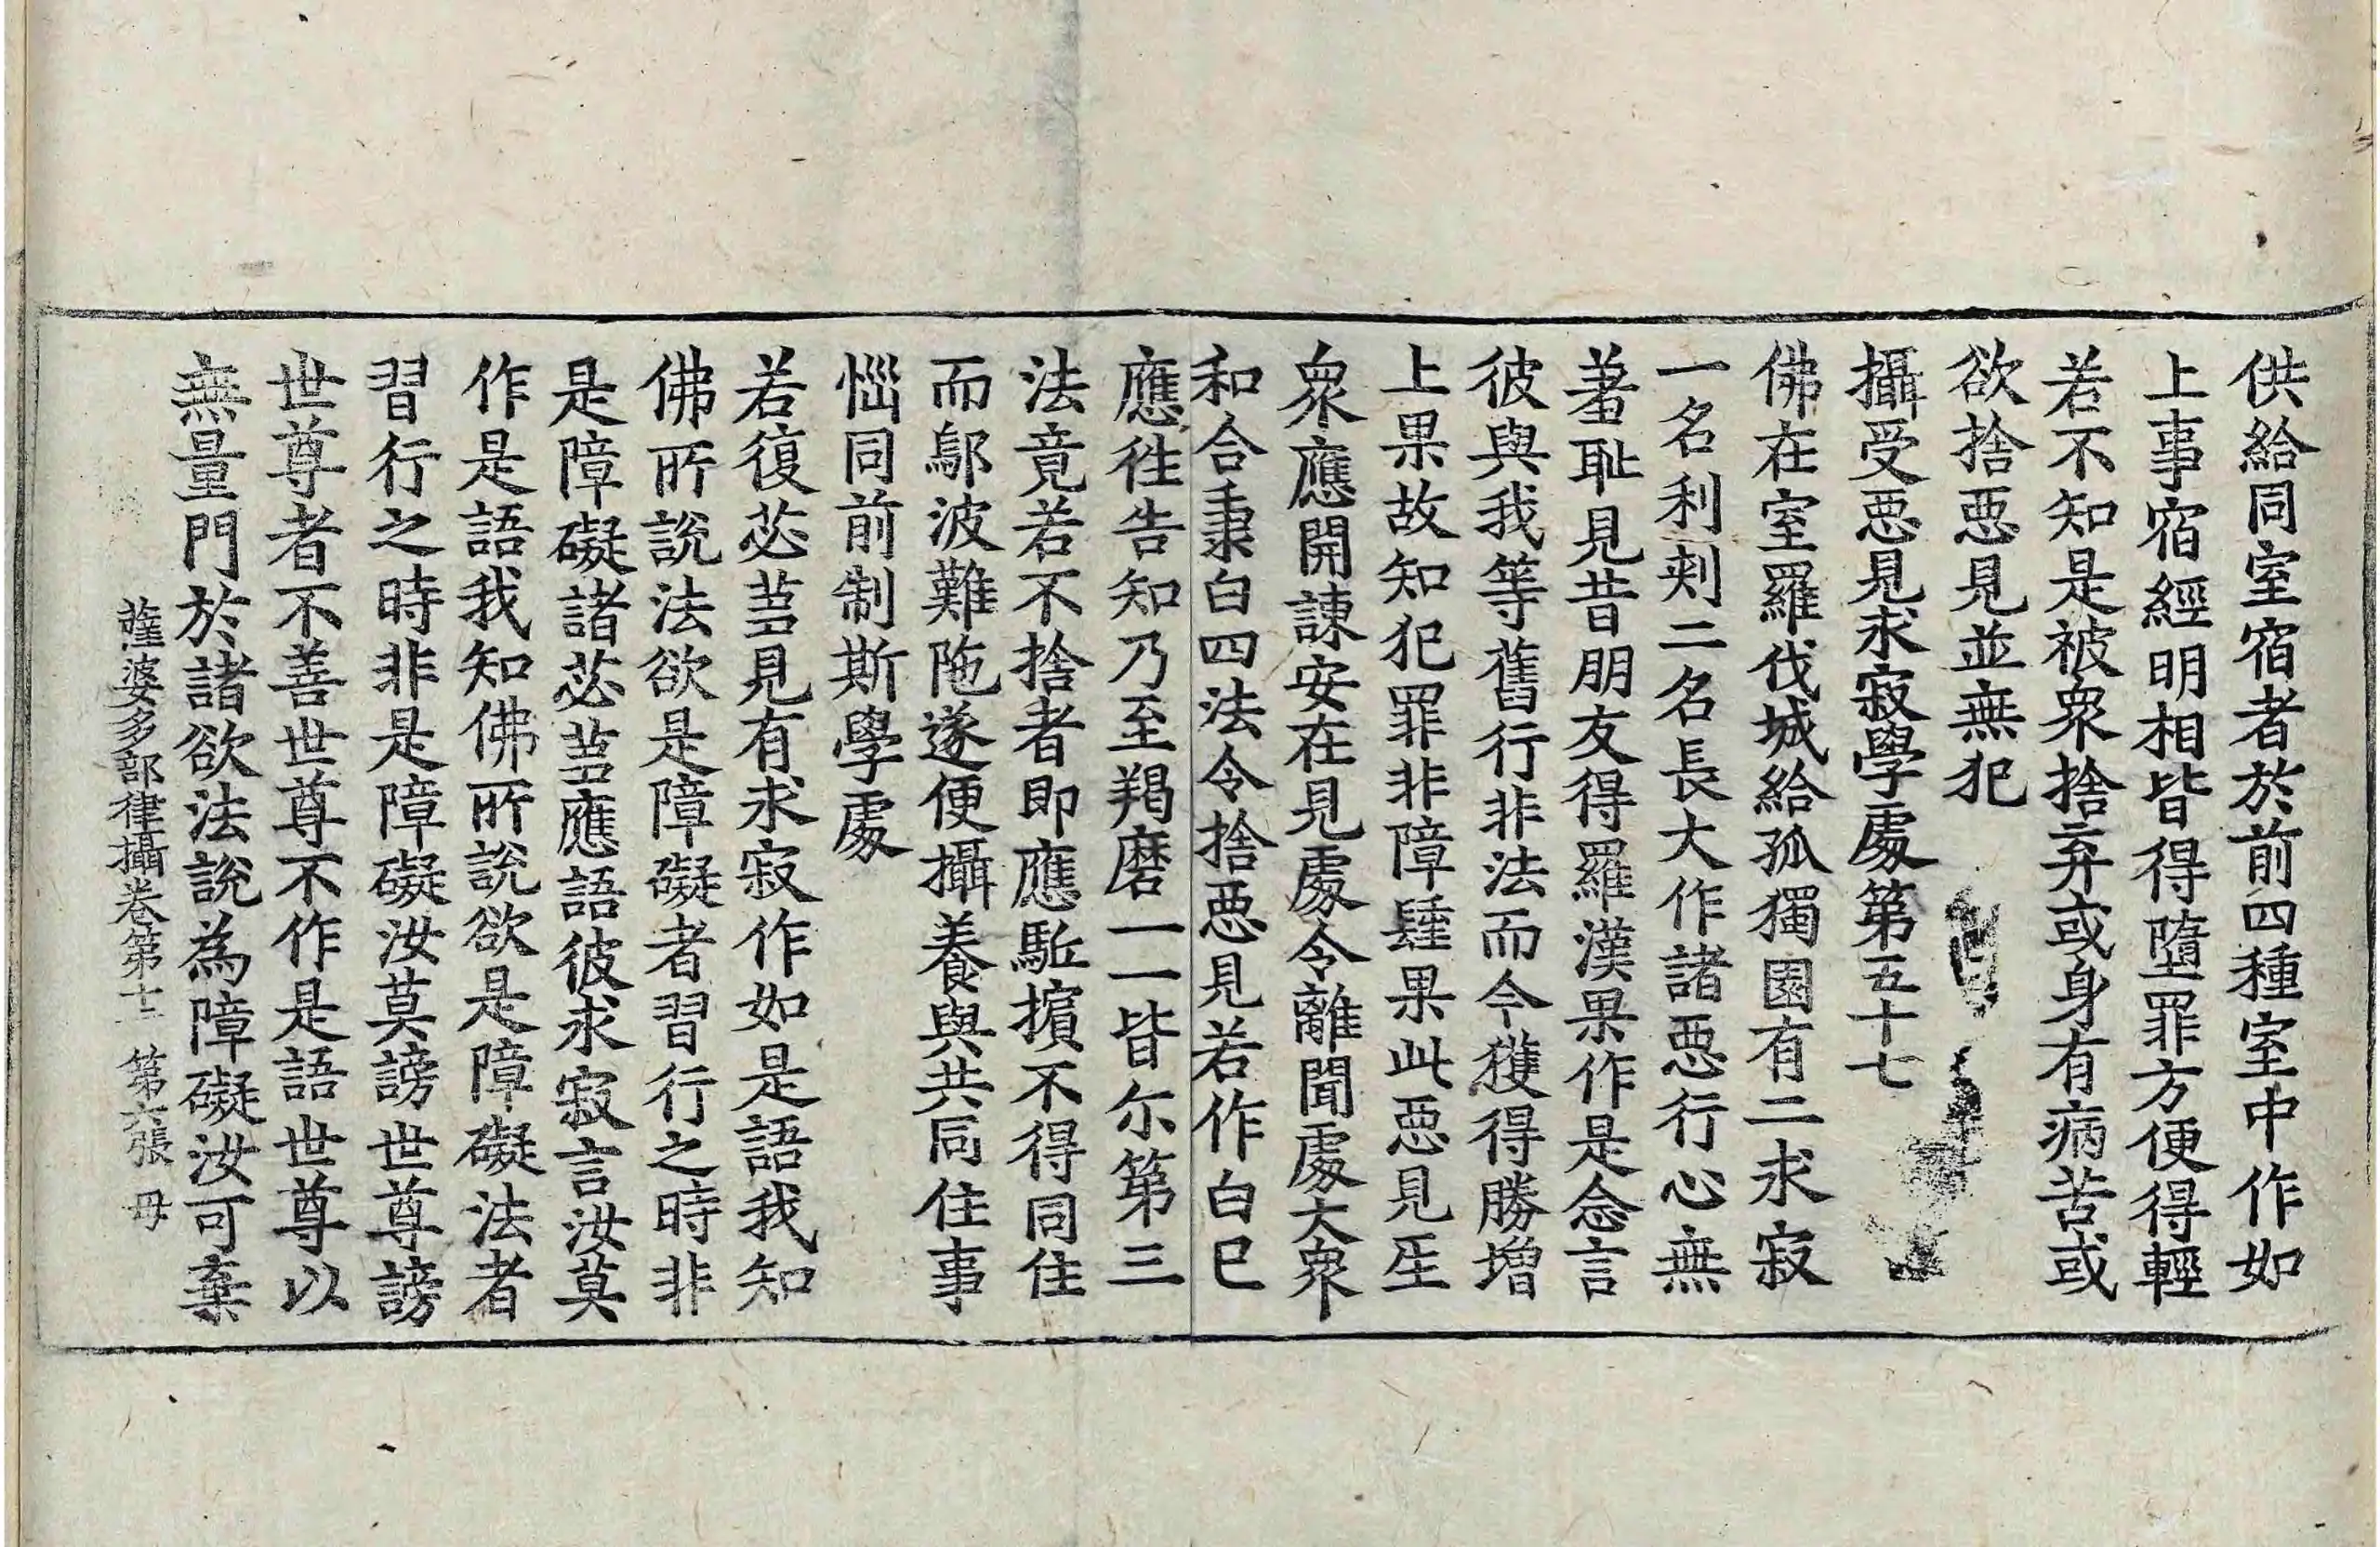 供給同室宿者於前四種室中作如
上事宿經明相皆得墮罪方便得輕
若不知是被衆捨弃或身有病苦或
欲捨惡見並無犯
攝受惡見求寂學處第五十七
佛在室羅伐城給孤獨園有二求寂
一名利刾二名長大作諸惡行心無
羞恥見昔朋友得羅漢果作是念言
彼與我等舊行非法而今獲得勝增
上果故知犯罪非障𨤲果此惡見生
衆應開諫安在見處令離聞處大衆
和合秉白四法令捨惡見若作白已
應徃告知乃至羯磨一一皆尒第三
法竟若不捨者即應駈擯不得同住
而鄔波難陁遂便攝養與共同住事
惱同前制斯學處
若復苾芻見有求寂作如是語我知
佛所說法欲是障礙者習行之時非
是障礙諸苾芻應語彼求寂言汝莫
作是語我知佛所說欲是障礙法者
習行之時非是障礙汝莫謗世尊謗
世尊者不善世尊不作是語世尊以
無量門於諸欲法說為障礙汝可棄
薩婆多部律攝卷第十二 第六張 毋